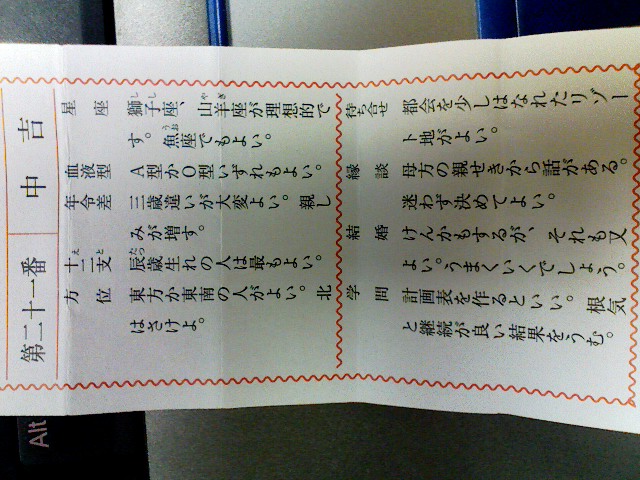 第二十一番 中吉
星座 獅子座、山羊座が理想的で
す。魚座でもよい。
血液型 A型かO型いずれもよい。
年令差 三歳違いが大変よい。親し
みが増す。
十二支 辰歳生れの人は最もよい。
方位 東方か東南の人がよい。北
はさけよ。
待ち合せ 都会を少しはなれたリゾー
ト地がよい。
縁談 母方の親せきから話がある。
迷わず決めてよい。
結婚 けんかもするが、それも又
よい。うまくいくでしょう。
学問 計画表を作るといい。根気
と継続が良い結果をうむ。
Alt